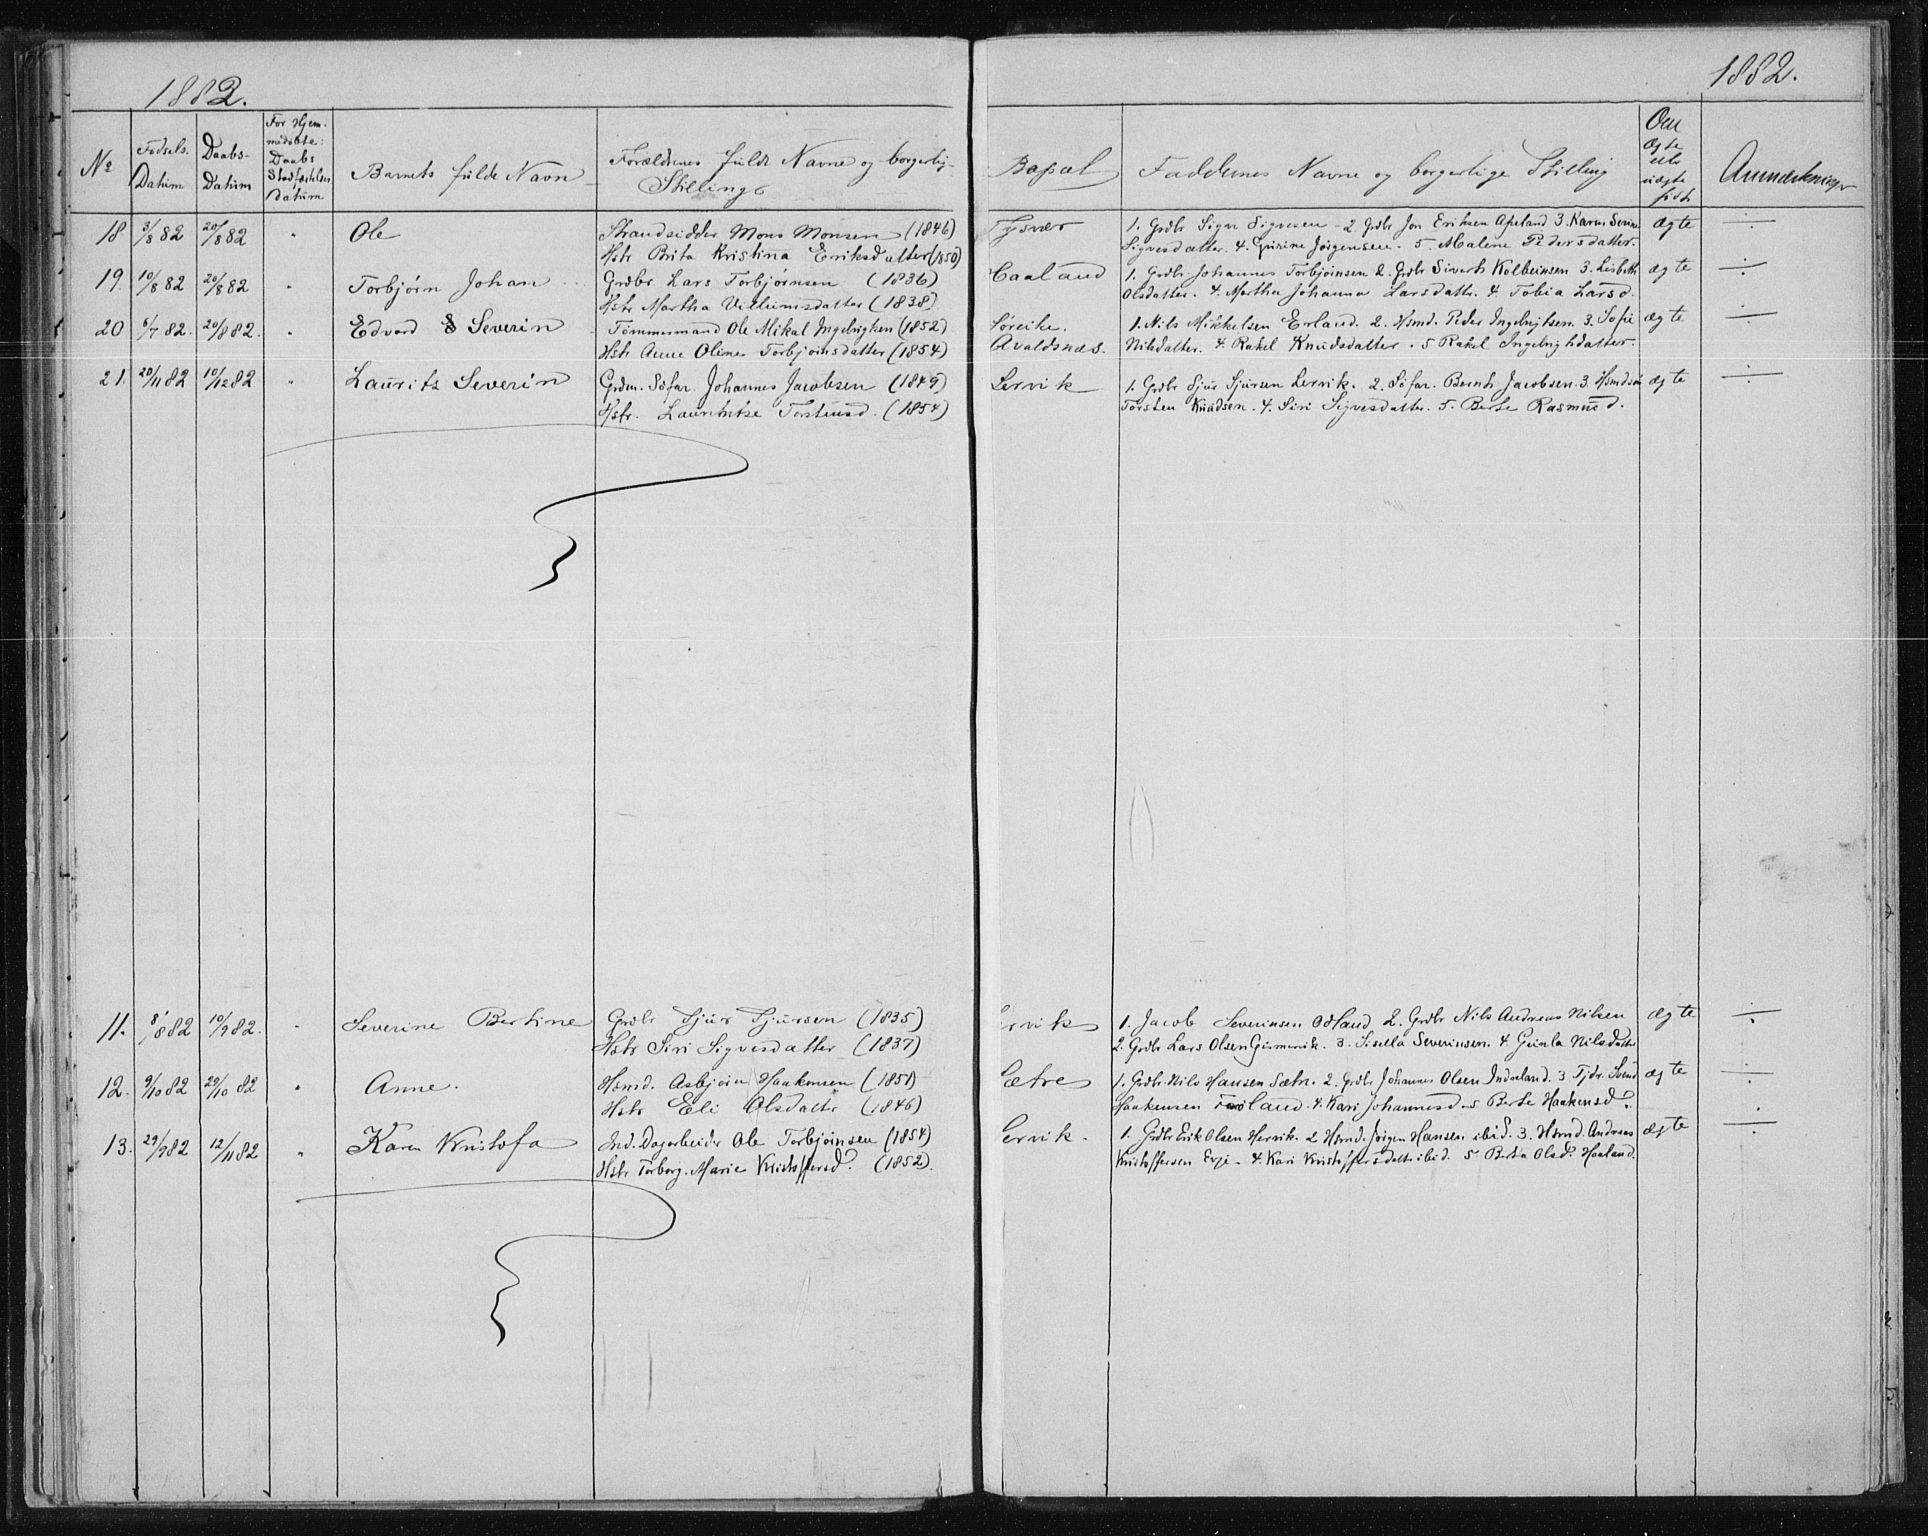 1882.
1882.
No
Fødsels-Datum
Daabs-Datum
For Hjemmedøbte: Daabs Stadfæstelses Datum
Barnets fulde Navn
Forældrenes fulde Navne og borgerlig Stilling
Bopæl
Faddernes Navne og borgerlige Stilling
Om Ægte eller uægte født
Anmærkninger
18 3/8 82 20/8 82 " Ole Strandsidder Mons Monsen (1846) Tysvær 1. Grdbr Sigve Sigvesen - 2. Grdbr Jon Eriksen Apeland 3. Karen Serine ægte ÷
Hstr Brita Kristina Eriksdatter (1850) Sigvesdatter. 4. Jørgensen. 5 Malene Pedersdatter.
19. 10/8 82 20/8 82 " Torbjørn Johan Grdbr. Lars Torbjørnsen (1836) Haaland 1. Grdbr. Johannes Torbjørnsen 2. Grdbr Sivert Kolbeinsen 3. Lisbeth ægte ÷
Hstr Martha Villumsdatter (1838) Olsdatter. 4. Martha Johanna Larsdatter. 4. Tobia Larsd.
20 6/7 82. 20/8 82. " Edvard Severin Tømmermand Ole Mikal Ingebrigtsen (1852) Søreike. 1. Nils Mikkelsen Erland. 2. Hsmd. Peder Ingebrigtsen. 3. Sofie ægte ÷
Hstr Anne Oline Torbjørnsdatter (1854) Avaldsnæs. Nilsdatter. 4. Rakel Knudsdatter. 5 Rakel Ingebrigtsdatter.
21. 20/11 82 10/12 82 " Laurits Severin Grdm. Søfar. Johannes Jacobsen (1849) Lervik 1. Grdbr Sjur Sjursen Lervik. 2. Søfar. Bernt Jacobsen. 3. Hsmdssøn ægte ÷
Hstr. Lauritze Torstensd. (1854) Torsten Knudsen. 4. Siri Sigvesdatter. 5. Berte Rasmusd.
11. 8/8 82 10/9 82. " Severine Bertine Grdbr Sjur Sjursen (1835) Lervik 1. Jacob Severinsen Odland 2. Grdbr Nils Andreas Nilsen ægte ÷
Hstr Siri Sigvesdatter (1837) 2. Grdbr Lars Olsen Gismervik. 3. Sisella Severinsen. 4. Gunla Nilsdatter
12. 9/10 82 29/10 82 " Anne. Hsmd. Asbjørn Haakonsen (1851) Sætre 1. Grdbr. Nils Hansen Sætre. 2. Grdbr Johannes Olsen Indreland. 3 Tjdr. Svend ægte ÷
Hstr Eli Olsdatter (1846) Haakensen Førland. 4. Kari Johannesd. 5 Berte Haakensd.
13. 29/9 82 12/11 82 " Karen Kristofa Ind. Dagarbeider Ole Torbjørnsen (1854) Lervik. 1. Grdbr Erik Olsen Hervik. 2 Hsmd. Jørgen Hansen ibid. 3. Hsmd. Andreas ægte ÷
Hstr Torborg Marie Kristoffersd. (1852). Kristoffersen Evje. 4. Kari Kristoffersdatter ibid. 5 Berta Olsd. Haaland.